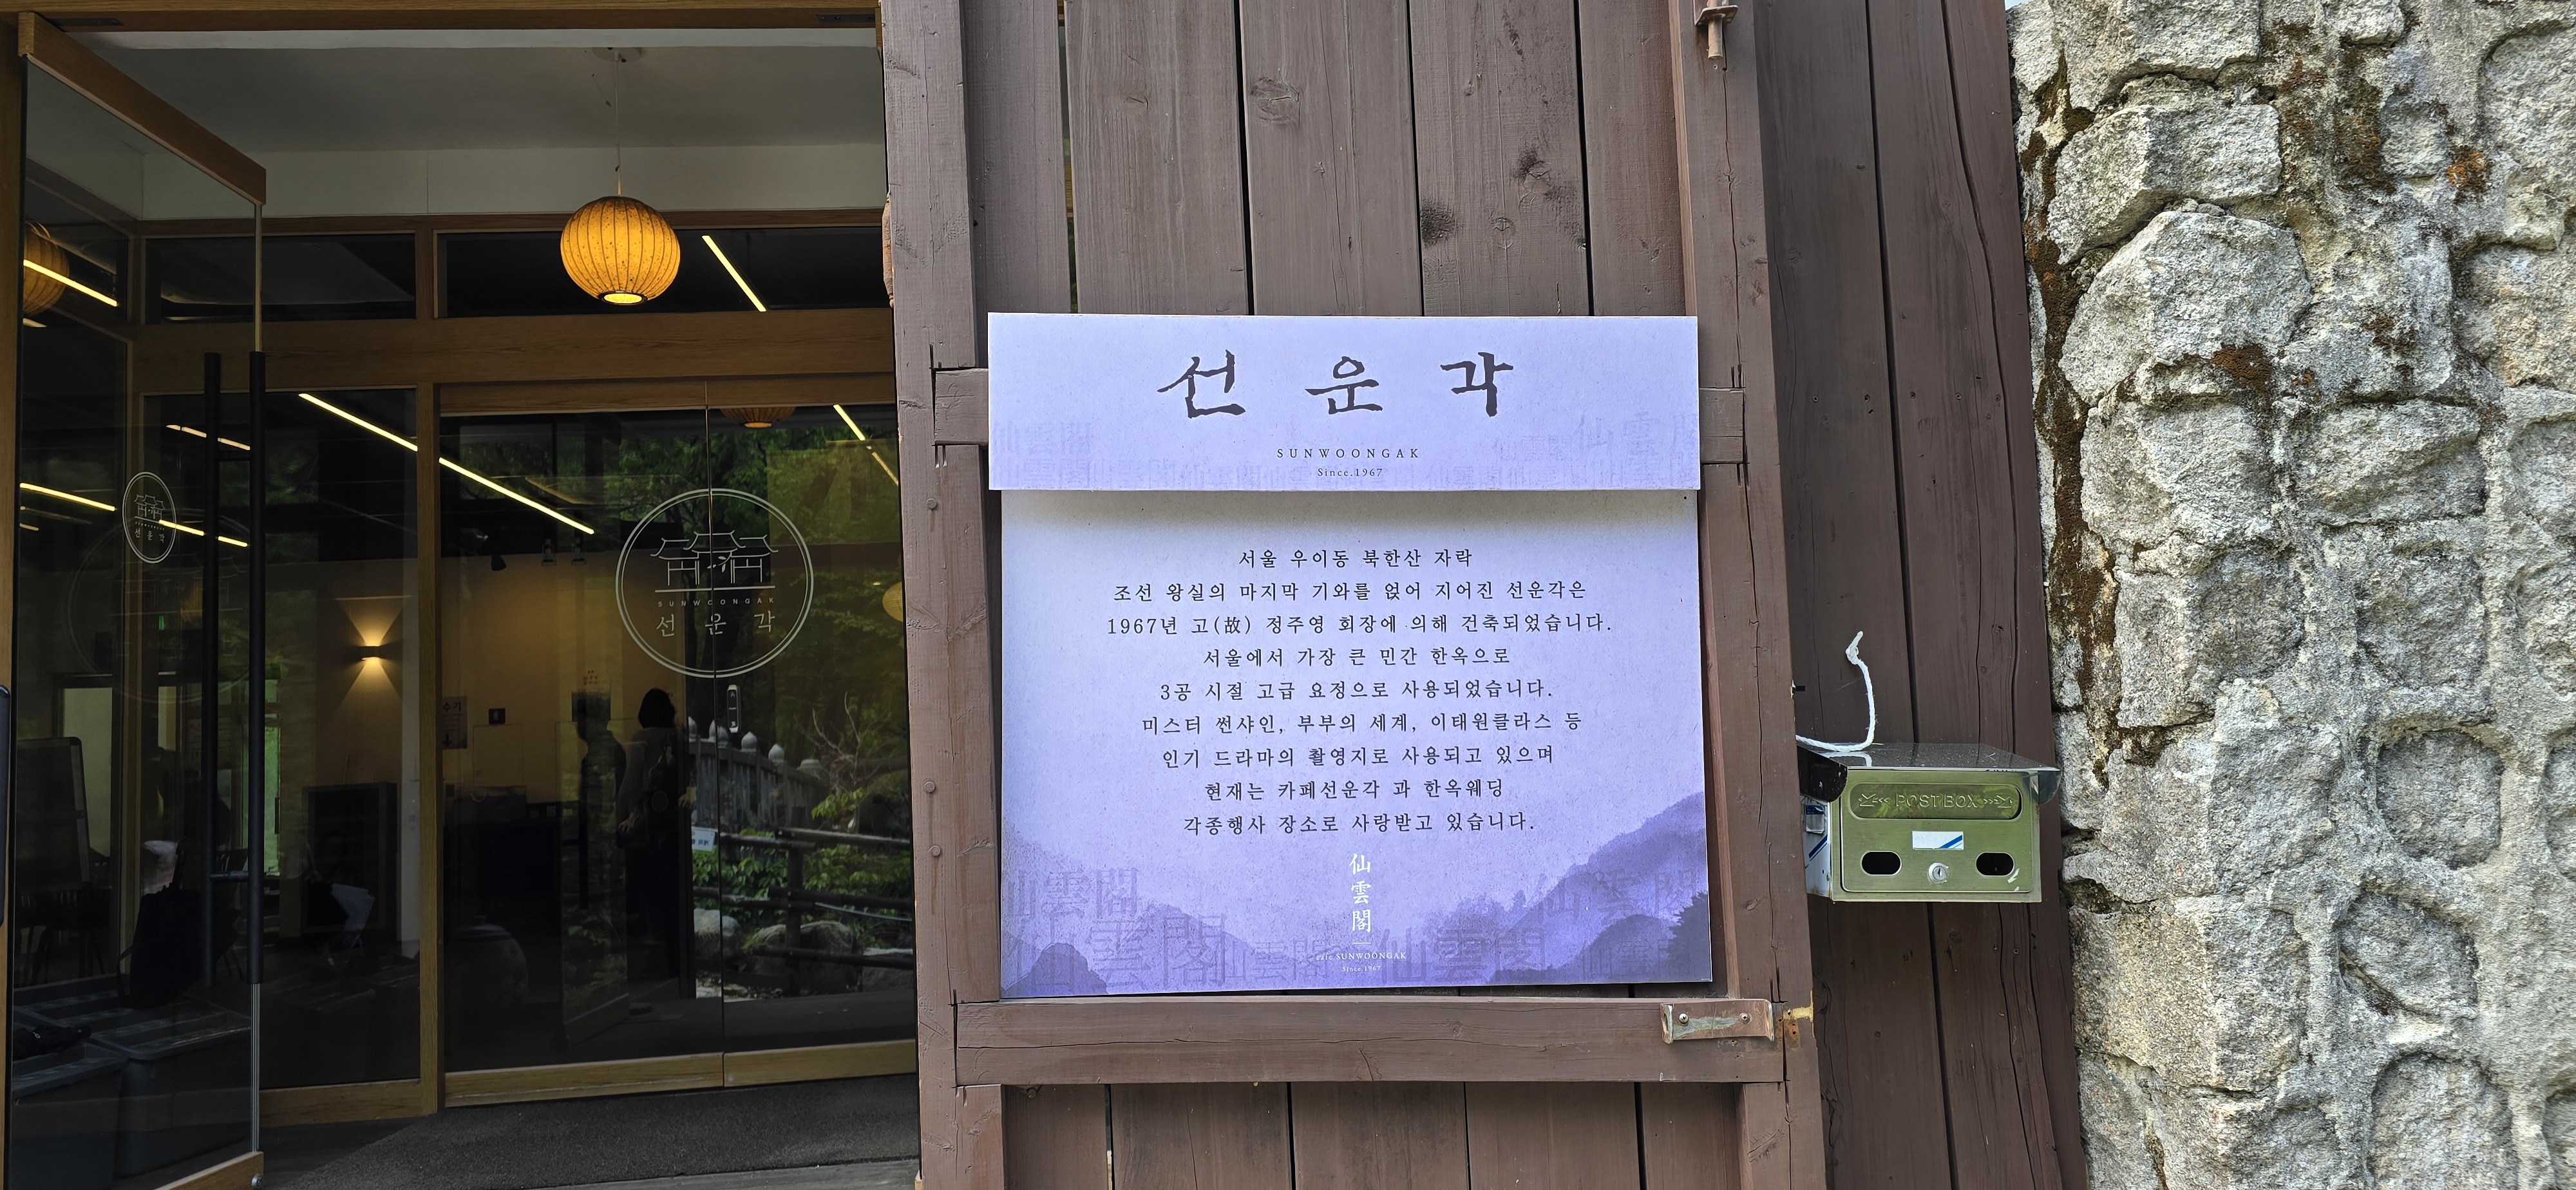 선운각
SUNWOONGAK
Since.1967
서울 우이동 북한산 자락
조선 왕실의 마지막 기와를 얹어 지어진 선운각은
1967년 고(故) 정주영 회장에 의해 건축되었습니다.
서울에서 가장 큰 민간 한옥으로
3공 시절 고급 요정으로 사용되었습니다.
미스터 썬샤인, 부부의 세계, 이태원클라스 등
인기 드라마의 촬영지로 사용되고 있으며
현재는 카페선운각 과 한옥웨딩
각종행사 장소로 사랑받고 있습니다.
仙雲閣
cafe SUNWOONGAK
Since.1967
SUNWOONGAK
선운각
선운각
POST BOX